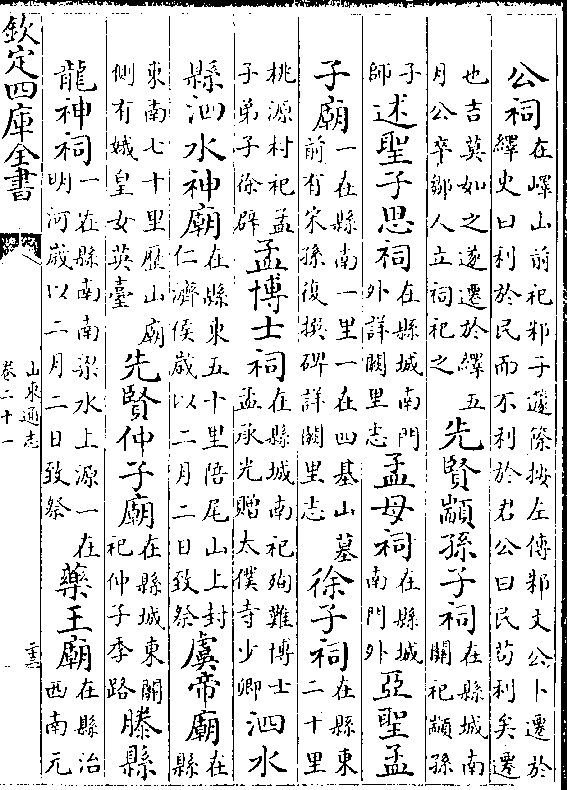 公祠在嶧山前祀邾子蘧篨按左傳邾文公卜遷於
繹史曰利於民而不利於君公曰民茍利矣遷
也吉莫如之遂遷於繹五
月公卒鄒人立祠祀之先賢顓孫子祠在縣城南
關祀顓孫
子
師述聖子思祠在縣城南門
外詳闕里志孟母祠在縣城
南門外亞聖孟
子廟一在縣南一里一在四基山
前有宋孫復撰碑詳闕里志墓徐子祠在縣東
二十里
桃源村祀孟
子弟子徐辟孟博士祠在縣城南祀殉難博士
孟承光贈太僕寺少卿泗水
縣泗水神廟在縣東五十里陪尾山上封
仁濟侯歲以二月二日致祭虞帝廟在
縣
東南七十里歷山廟
側有娥皇女英臺先賢仲子廟在縣城東關
祀仲子季路滕縣
龍神祠一在縣南南梁水上源一在
明河歲以二月二日致祭藥王廟在縣治
西南元
欽定四庫全書
山東通志
卷二十一